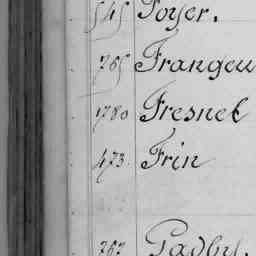 545 Foyer.
765 Frangeu
1780 Fresnel
473. Frin
767 Gadby.